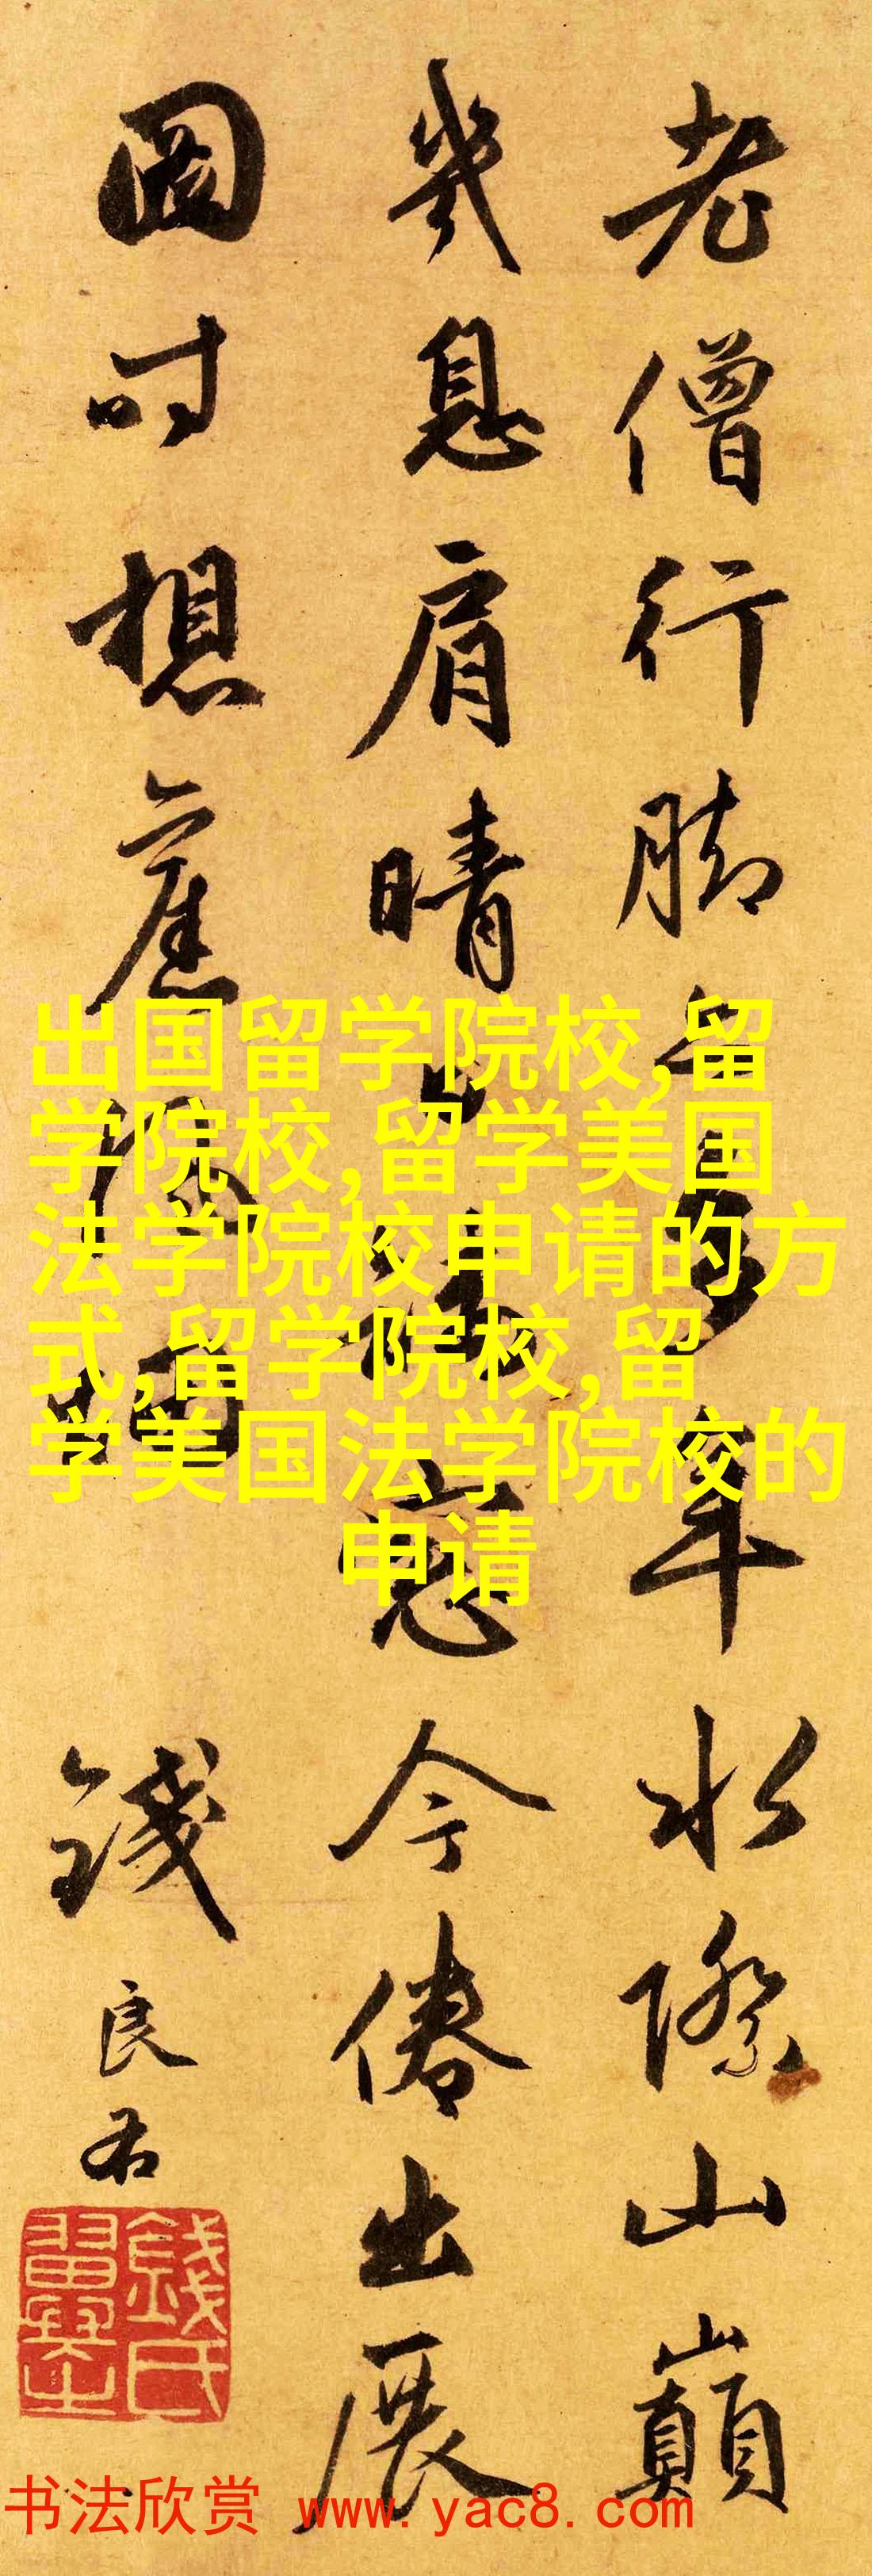 老僧行脚與多年水際山巔
幾息肩晴日依窓今倦出展
圖时想舊因
錢良右
錢氏翼之
出国留学院校,留
学院校,留学美国
法学院校申请的方
式,留学院校,留
学美国法学院校的
申请
书法欣赏 www.yac8.com